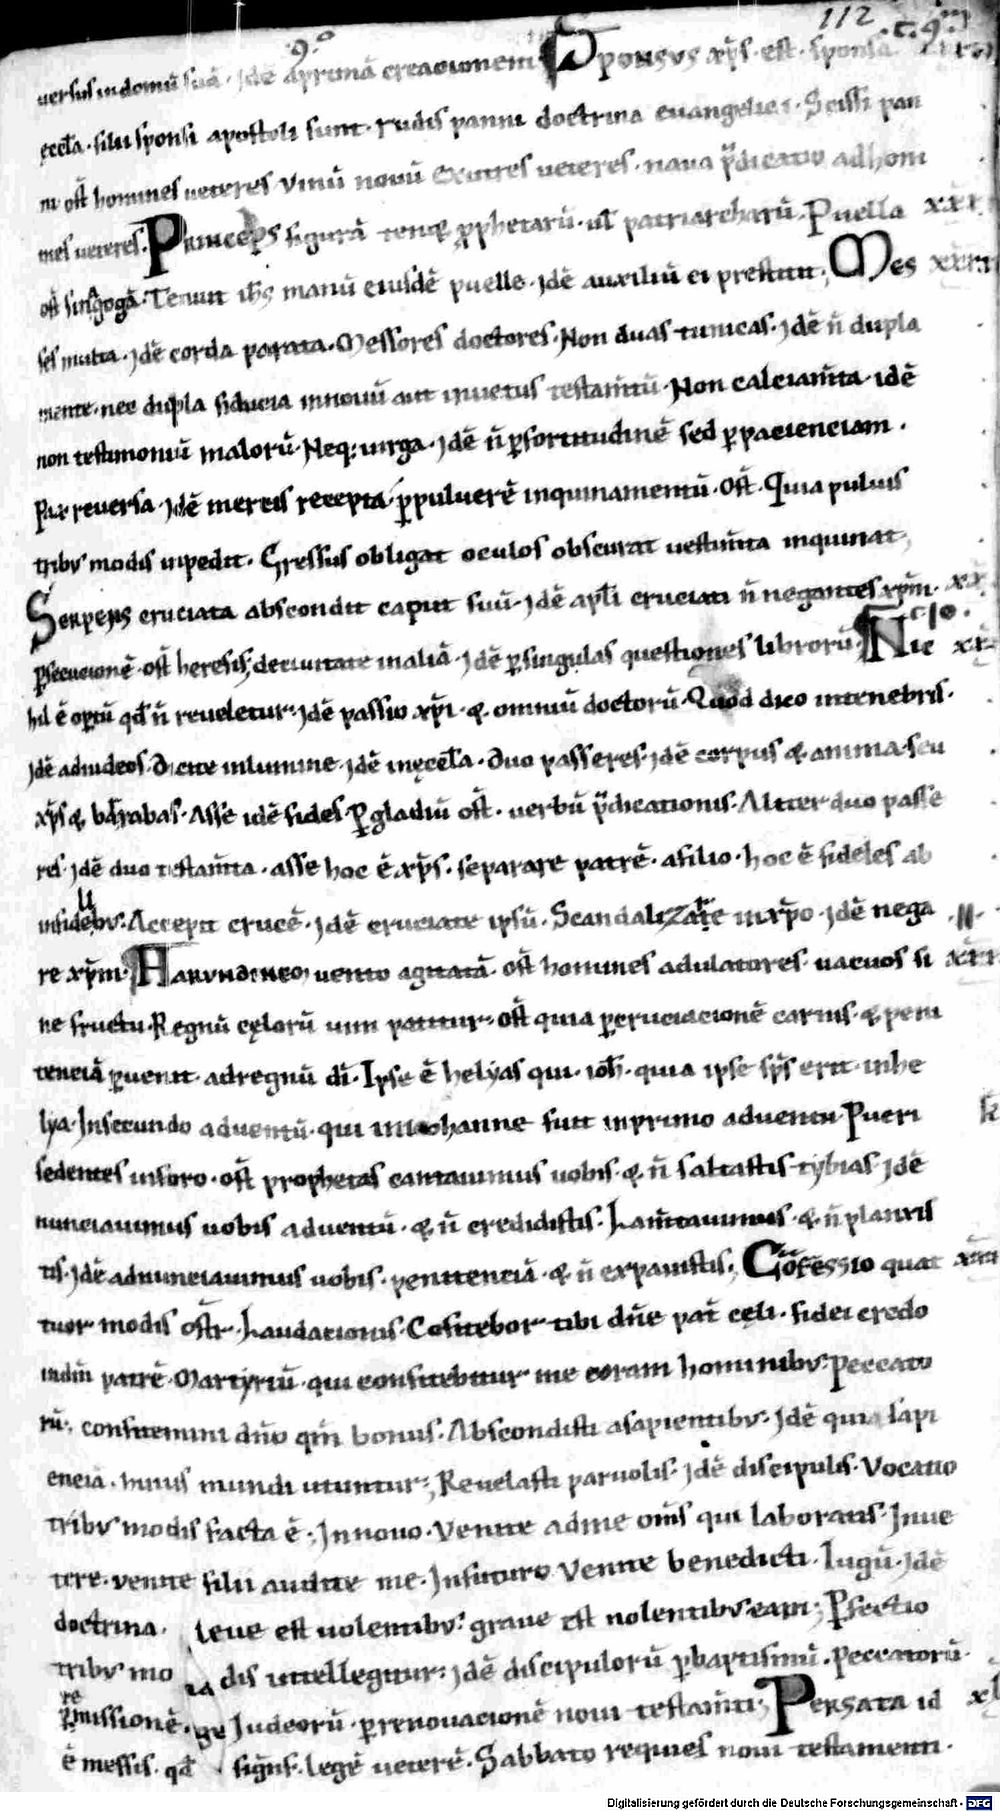 9.º 112 c. 9m
uersus in domū suā. Idē ad primā creationem Sponsus xp̄s est. sponsa
ęccl̄a. filii sponsi apostoli sunt. rudis panni doctrina euangelica. Scissi pan
ni ost̄ homines ueteres Vinū nouū Exutres ueteres. naua p̄dicatio ad homi
nes ueteres. Princeps figurā tenet p̄phetarū. ul̄ patriarcharū. Puella xxx
ost̄ sinagogā. Tenuit ih̄s manū eiusdē puelle. idē auxiliū ei prestitit; Mes
ses multa. idē corda parata. Messores doctores. Non duas tunicas. Idē n̄ dupla
mente. nec dupla fiducia in nouū aut in uetus testam̄tū. Non calciam̄ta. idē
non testimoniū malorū. Neq; uirga. idē n̄ p̱ fortitudinē sed p̱ pacienciam.
Pax reuersa. Idē merces recepta. p̱ puluerē inquinamentū. ost̄. Quia puluis
tribv modis inpedit. Gressus obligat oculos obscurat uestim̄ta inquinat,
Serpens cruciata abscondit caput suū. Idē apl̄i cruciati n̄ negantes xp̄m. xx
p̱secucionē. ost̄ heresis; deciuitate in aliā. idē p̱ singulas questiones librorū. Nic
hil ē op̱tū qd̄ n̄ reueletur. idē passio xp̄i. & omniū doctorū. Quod dico in tenebris.
Idē ad iudeos. Dicite in lumine. idē in ęccl̄a. Duo passeres. idē corpus & anima. seu
xp̄s & barrabas. Asse idē fides. P̱ gladiū ost̄. uerbū p̄dicationis. Aliter duo passe
res. idē duo testam̄ta. asse hoc ē xp̄s. separare patrē. a filio. hoc ē fideles ab
infidelibv. Accepit crucē. idē cruciate ipsū. Scandalizare in xp̄o. idē nega
re xp̄m. Harundineo uento agitatā. ost̄ homines adulatores. uacuos si
ne fructu. Regnū cęlorū uim patitur. ost̄ quia p̱ cruciacionē carnis. & peni
tenciā p̱uenit ad regnū dī. Ipse ē helyas qui. ioh̄. quia ipse sp̄s erit in he
lya. In secundo aduentū. qui in iohanne fuit in primo aduentu. Pueri
sedentes in foro. ost̄ prophetas cantauimus uobis. & n̄ saltastis. tybias. idē
nunciauimus uobis aduentū. & n̄ credidistis. Lam̄tauimus. & n̄ planxis
tis. idē adnunciauimus uobis. penitenciā. & n̄ expauistis; Cōfessio quat
tuor modis ostr̄. Laudationis. Cofitebor tibi dn̄e pat̄ cęli. fidei credo
in dm̄ patrē. Martyriū. qui confitebitur me coram hominibv. peccato
rū. confitemini dn̄o qm̄ bonus. Abscondisti a sapientibv. Idē quia sapi
encia. huius mundi utuntur; Reuelasti paruolis. idē discipulis. Vocatio
tribv modis facta ē; In nouo. Venite ad me om̄s qui laboratis. In ue
tere. venite filii audite me. In futuro Venite benedicti. Iugū. Idē
doctrina. leue est uolentibv. graue est nolentibv eam; P̱fectio
tribv modis intellegitur. idē discipulorū p̱ baptismū. peccatorū.
p̱ remissionē. Iudeorū. p̱ renouacionē noui testam̄ti; Per sata id
ē messis. qd̄ signif. legē ueterē. Sabbato requies noui testamenti.
Digitalisierung gefördert durch die Deutsche Forschungsgemeinschaft - DFG